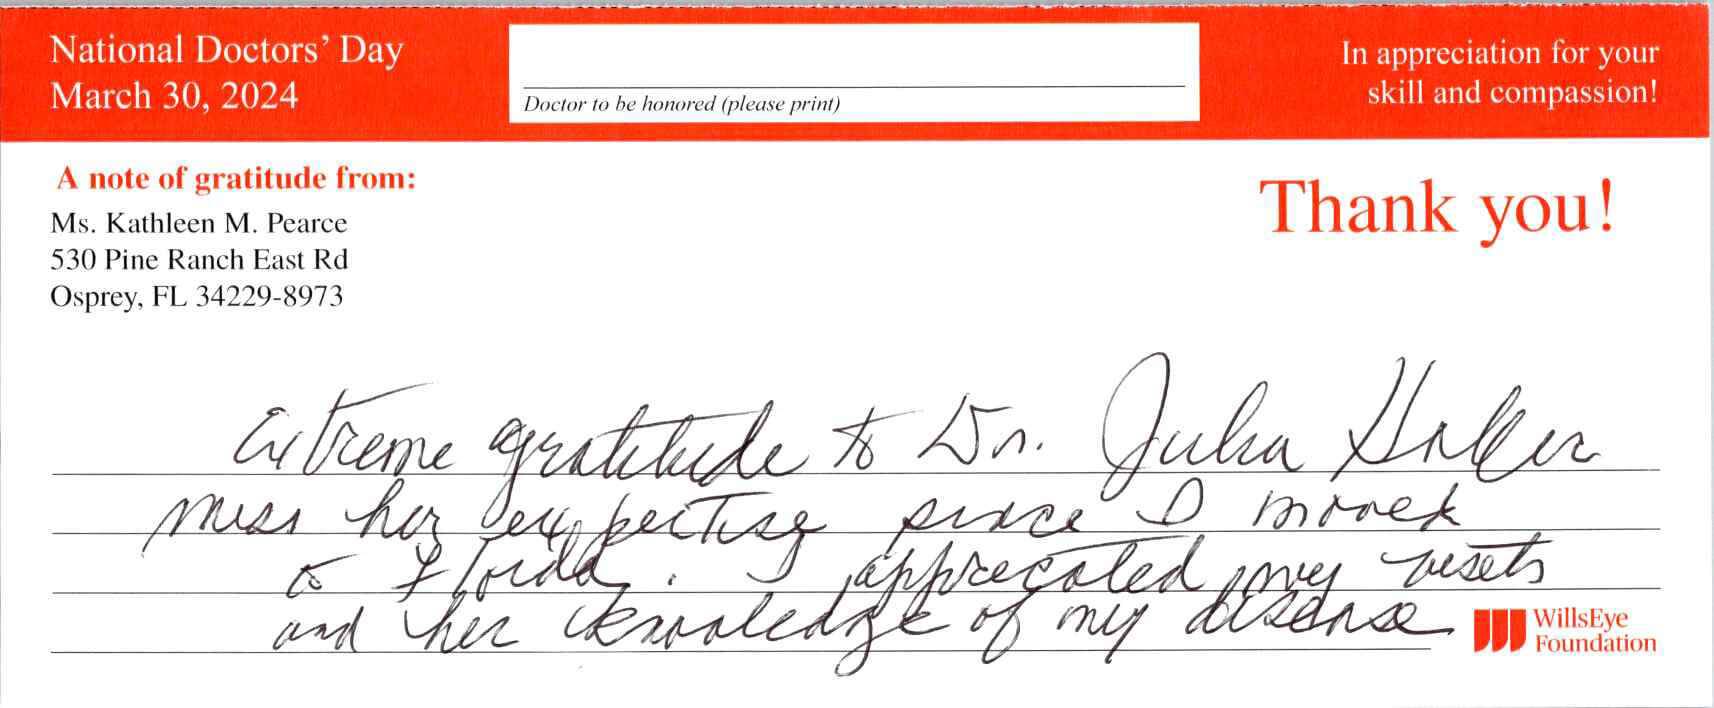 National Doctors' Day
March 30, 2024
Doctor to be honored (please print)
In appreciation for your
skill and compassion!
A note of gratitude from:
Ms. Kathleen M. Pearce
530 Pine Ranch East Rd
Osprey, FL 34229-8973
Thank you!
Extreme gratitude to Dr. Julia Haller
miss her expertise since I moved
to Florida. I appreciated my visits
and her knowledge of my disease
WillsEye
Foundation